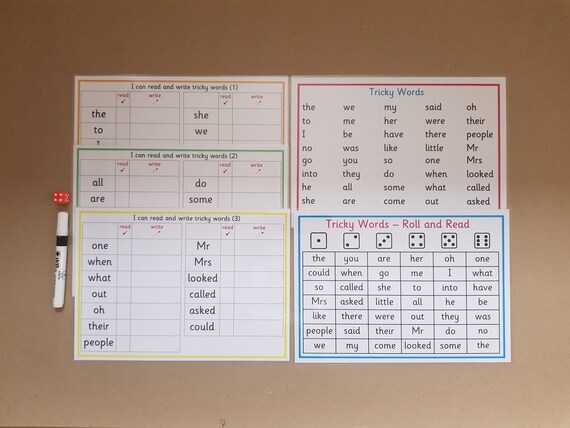 I can read and write tricky words (1)
read write read write
the she
to we
I can read and write tricky words (2)
read write read write
all do
are some
I can read and write tricky words (3)
read write read write
one Mr
when Mrs
what looked
out called
oh asked
their could
people
Tricky Words
the we my said oh
to me her were their
I be have there people
no was like little Mr
go you so one Mrs
into they do when looked
he all some what called
she are come out asked
Tricky Words – Roll and Read
the you are her oh one
could when go me I what
so called she to into have
Mrs asked little all he be
like there were out they was
people said their Mr do no
we my come looked some the